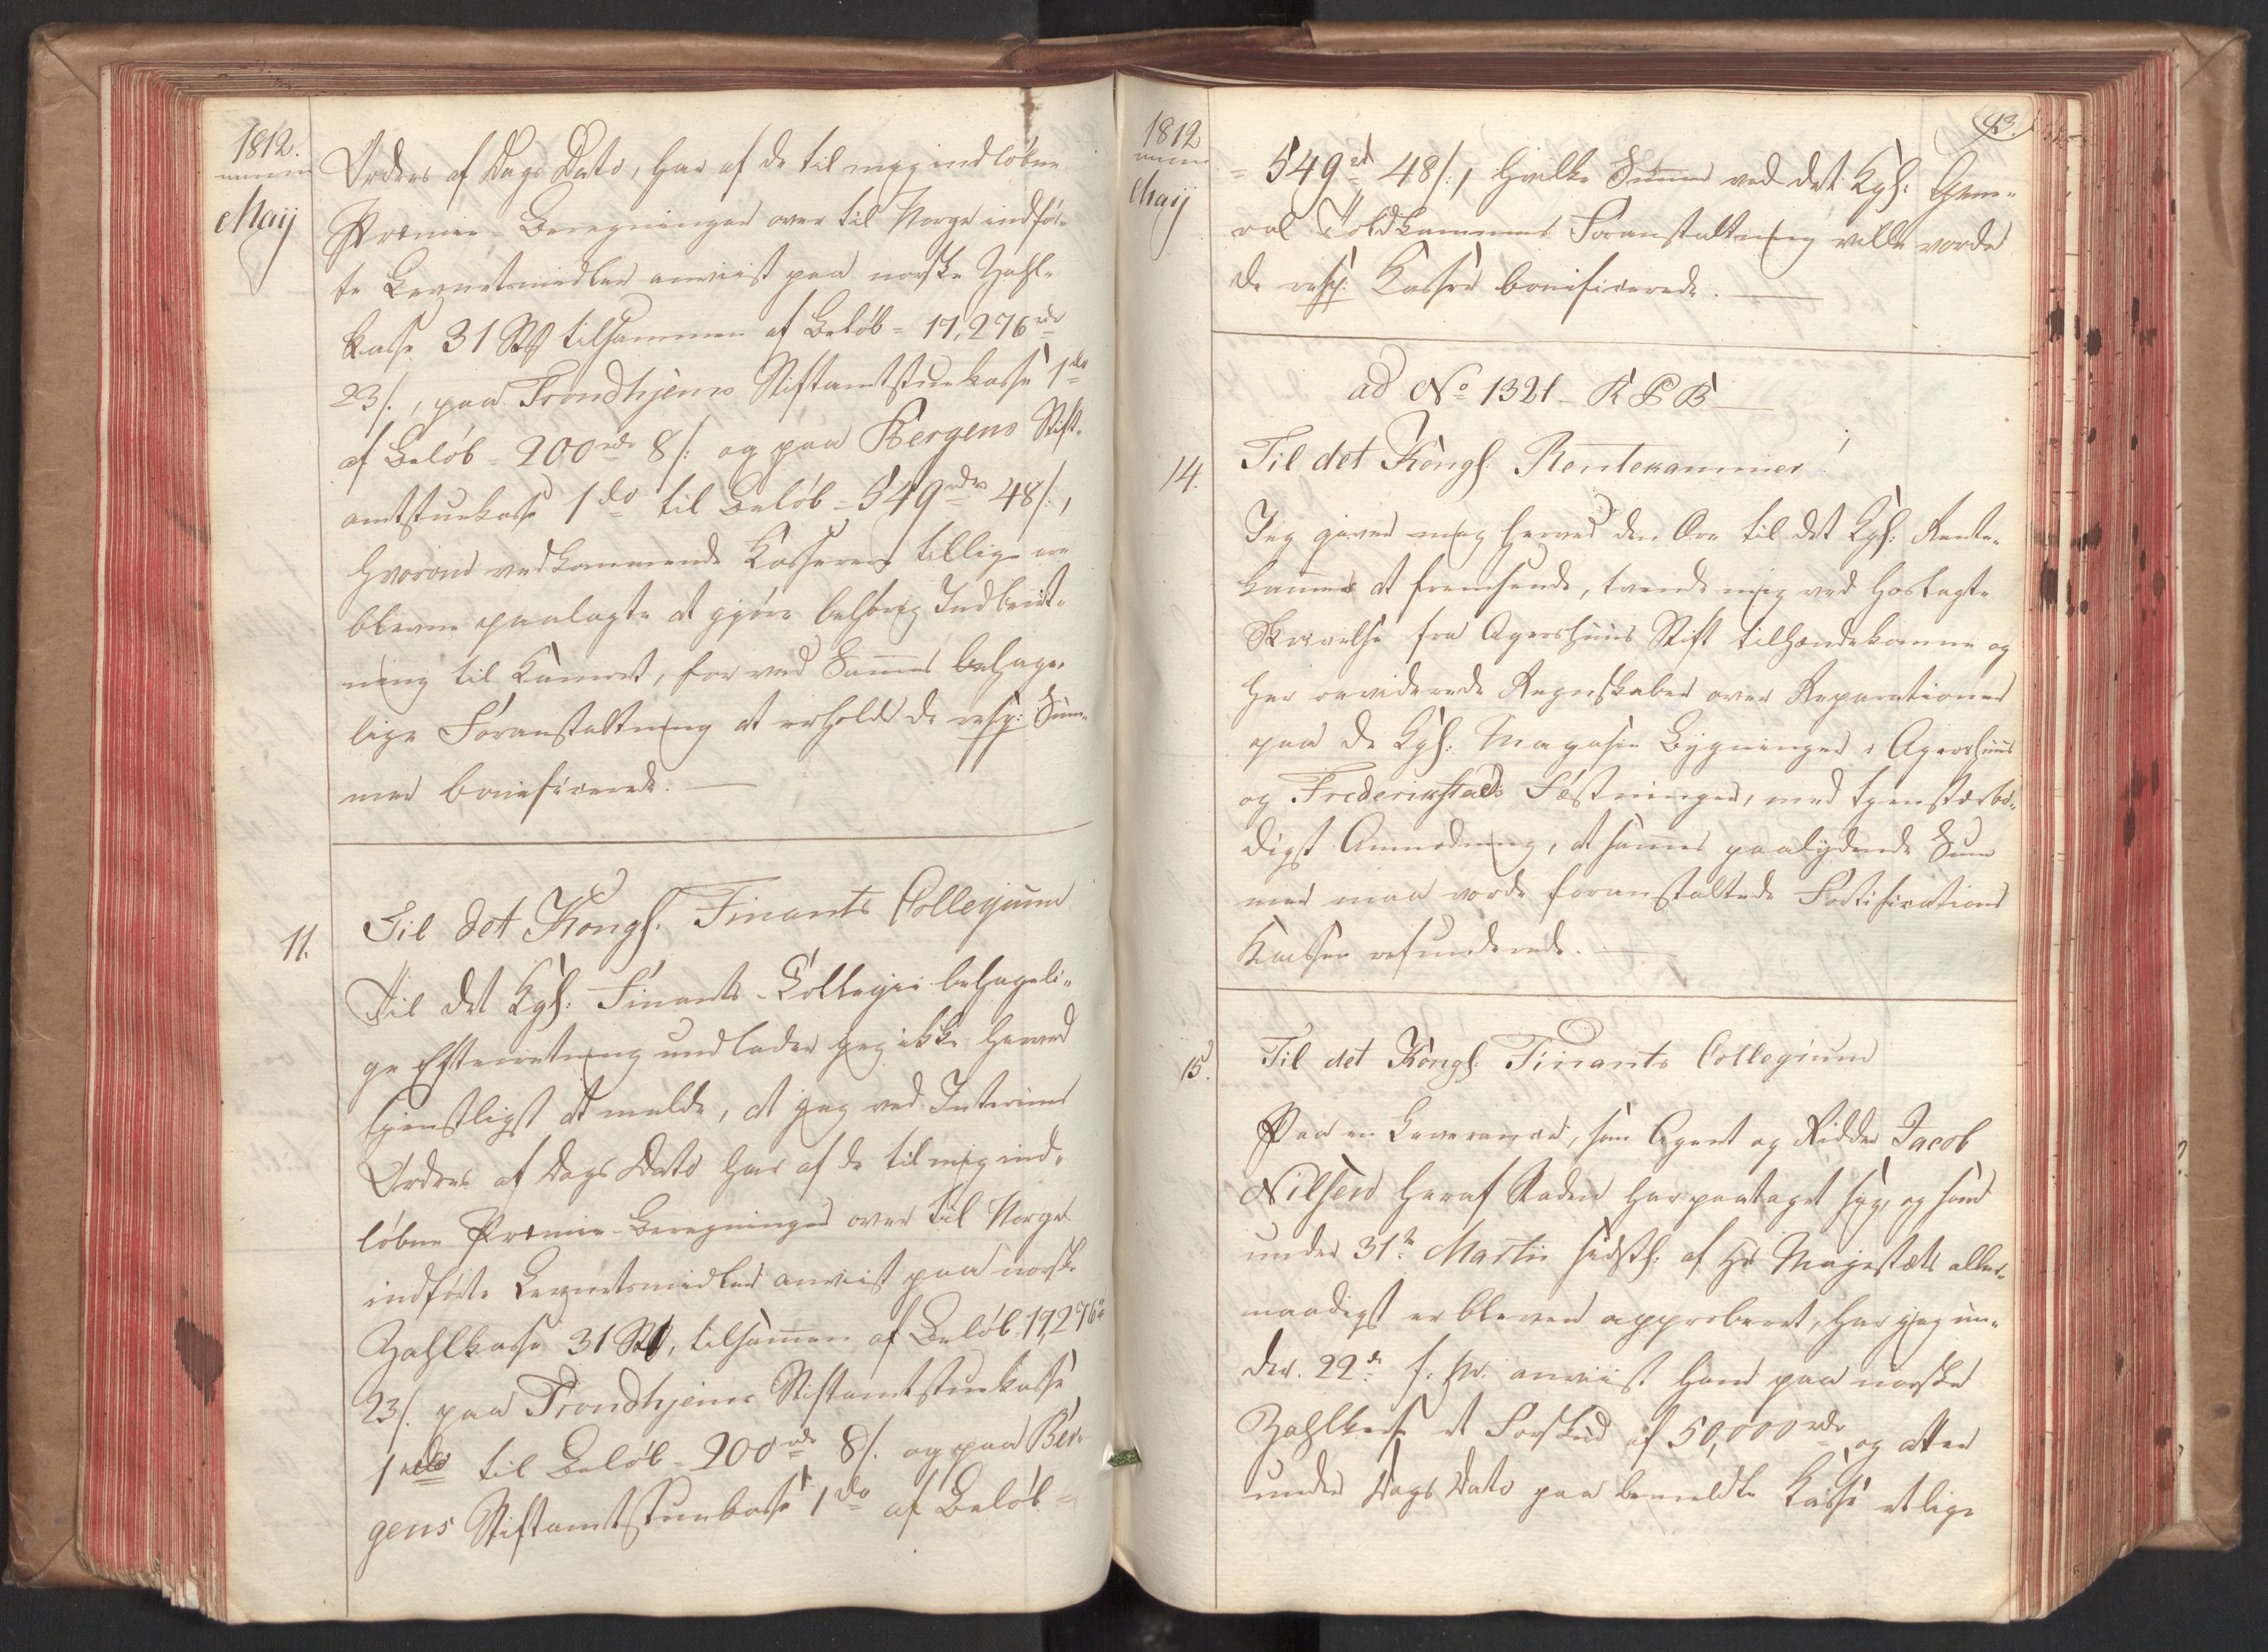 1812.
Maij
Ordres af Dags Dato, har af de til mig indløbne
Præmie-Beregninger over til Norge indfør-
te Levnetsmidler anviist paa norske Zahl-
kasse 31 St tilsammen af Beløb = 17,276 rdr
23/., paa Trondhjems Stiftamtstuekasse 1 do
af Beløb = 200 rdr 8/: og paa Bergens Stift-
amtstuekasse 1 do til Beløb = 549 rdr 48/:,
hvorom vedkommende Kasserere tillige ere
blevne paalagte at gjøre behørig Indberet-
ning til Kamret, for ved Sammes behage-
lige Foranstaltning at erholde de resp: Sum-
mer bonificerede.
11.
Til det Kongl. Finants Collegium
Til det Kgl: Finants-Collegii behageli-
ge Efterretning undlader jeg ikke herved
tjenstligst at melde, at jeg ved Interims
Ordres af Dags Dato har af de til mig ind-
løbne Præmie-Beregninger over til Norge
indførte Levnetsmidler anviist paa norske
Zahlkasse 31 St, tilsamen af Beløb 17,276
23/. paa Trondhjems Stiftamtstuekasse
1 do til Beløb = 200 rdr 8/. og paa Ber-
gens Stiftamtstuekasse 1 do af Beløb =
1812
Maij
43.
= 549 rd 48/:, hvilke Summer ved det Kgl: Gene-
ral Toldkammers Foranstaltning ville vorde
de resp: Kasser bonificerede.
ad No 1321 - K P B
14.
Til det Kongl. Rentekammer!
Jeg giver mig herved den Ære til det Kgl: Rente-
kamer at fremsende, tvende mig ved hoslagte
Skrivelse fra Agershuus Stift tilhændekomne og
her reviderede Regnskaber over Reparationer
paa de Kgl: Magasin Bygninger i Agershuus
og Frederikstads Fæstninger, med tjenstærbø-
digst Anmodning, at sammes paalydende Sum
mer maa vorde foranstaltede Fortifications
Kassen refunderede.
15.
Til det Kongl. Finants Collegium
Paa en Leverance, som Agent og Ridder Jacob
Nilsen heraf Staden har paataget sig, og som
under 31te Martii sidstl: af Hs Majestæts aller-
naadigst er bleven approberet, har jeg un-
der 22de f. M. anviist ham paa norske
Zahlkasse et Forskud af 50,000 rdr og atter
under Dags Dato paa bemeldte Kasse et lige